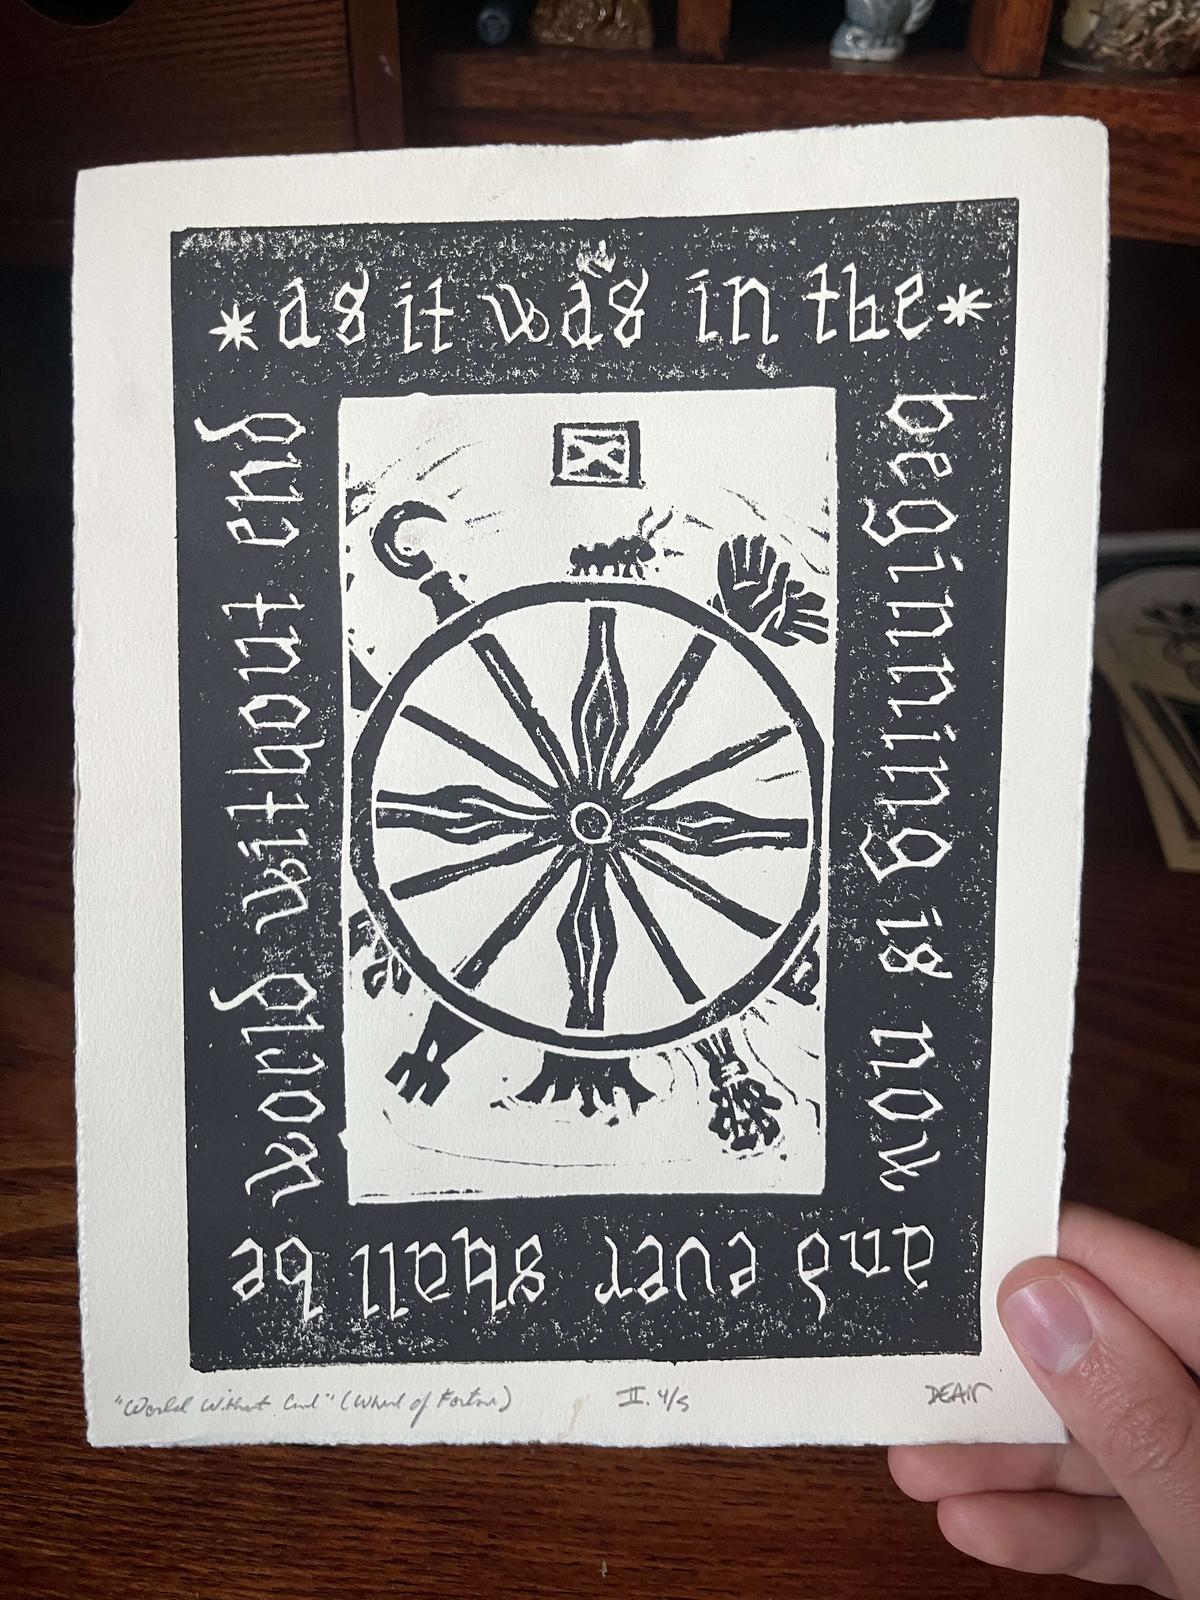 *as it was in the*
beginning is now
and ever shall be
world without end
X
"World Without End" (Wheel of Fortune)
II. 4/5
DEAN